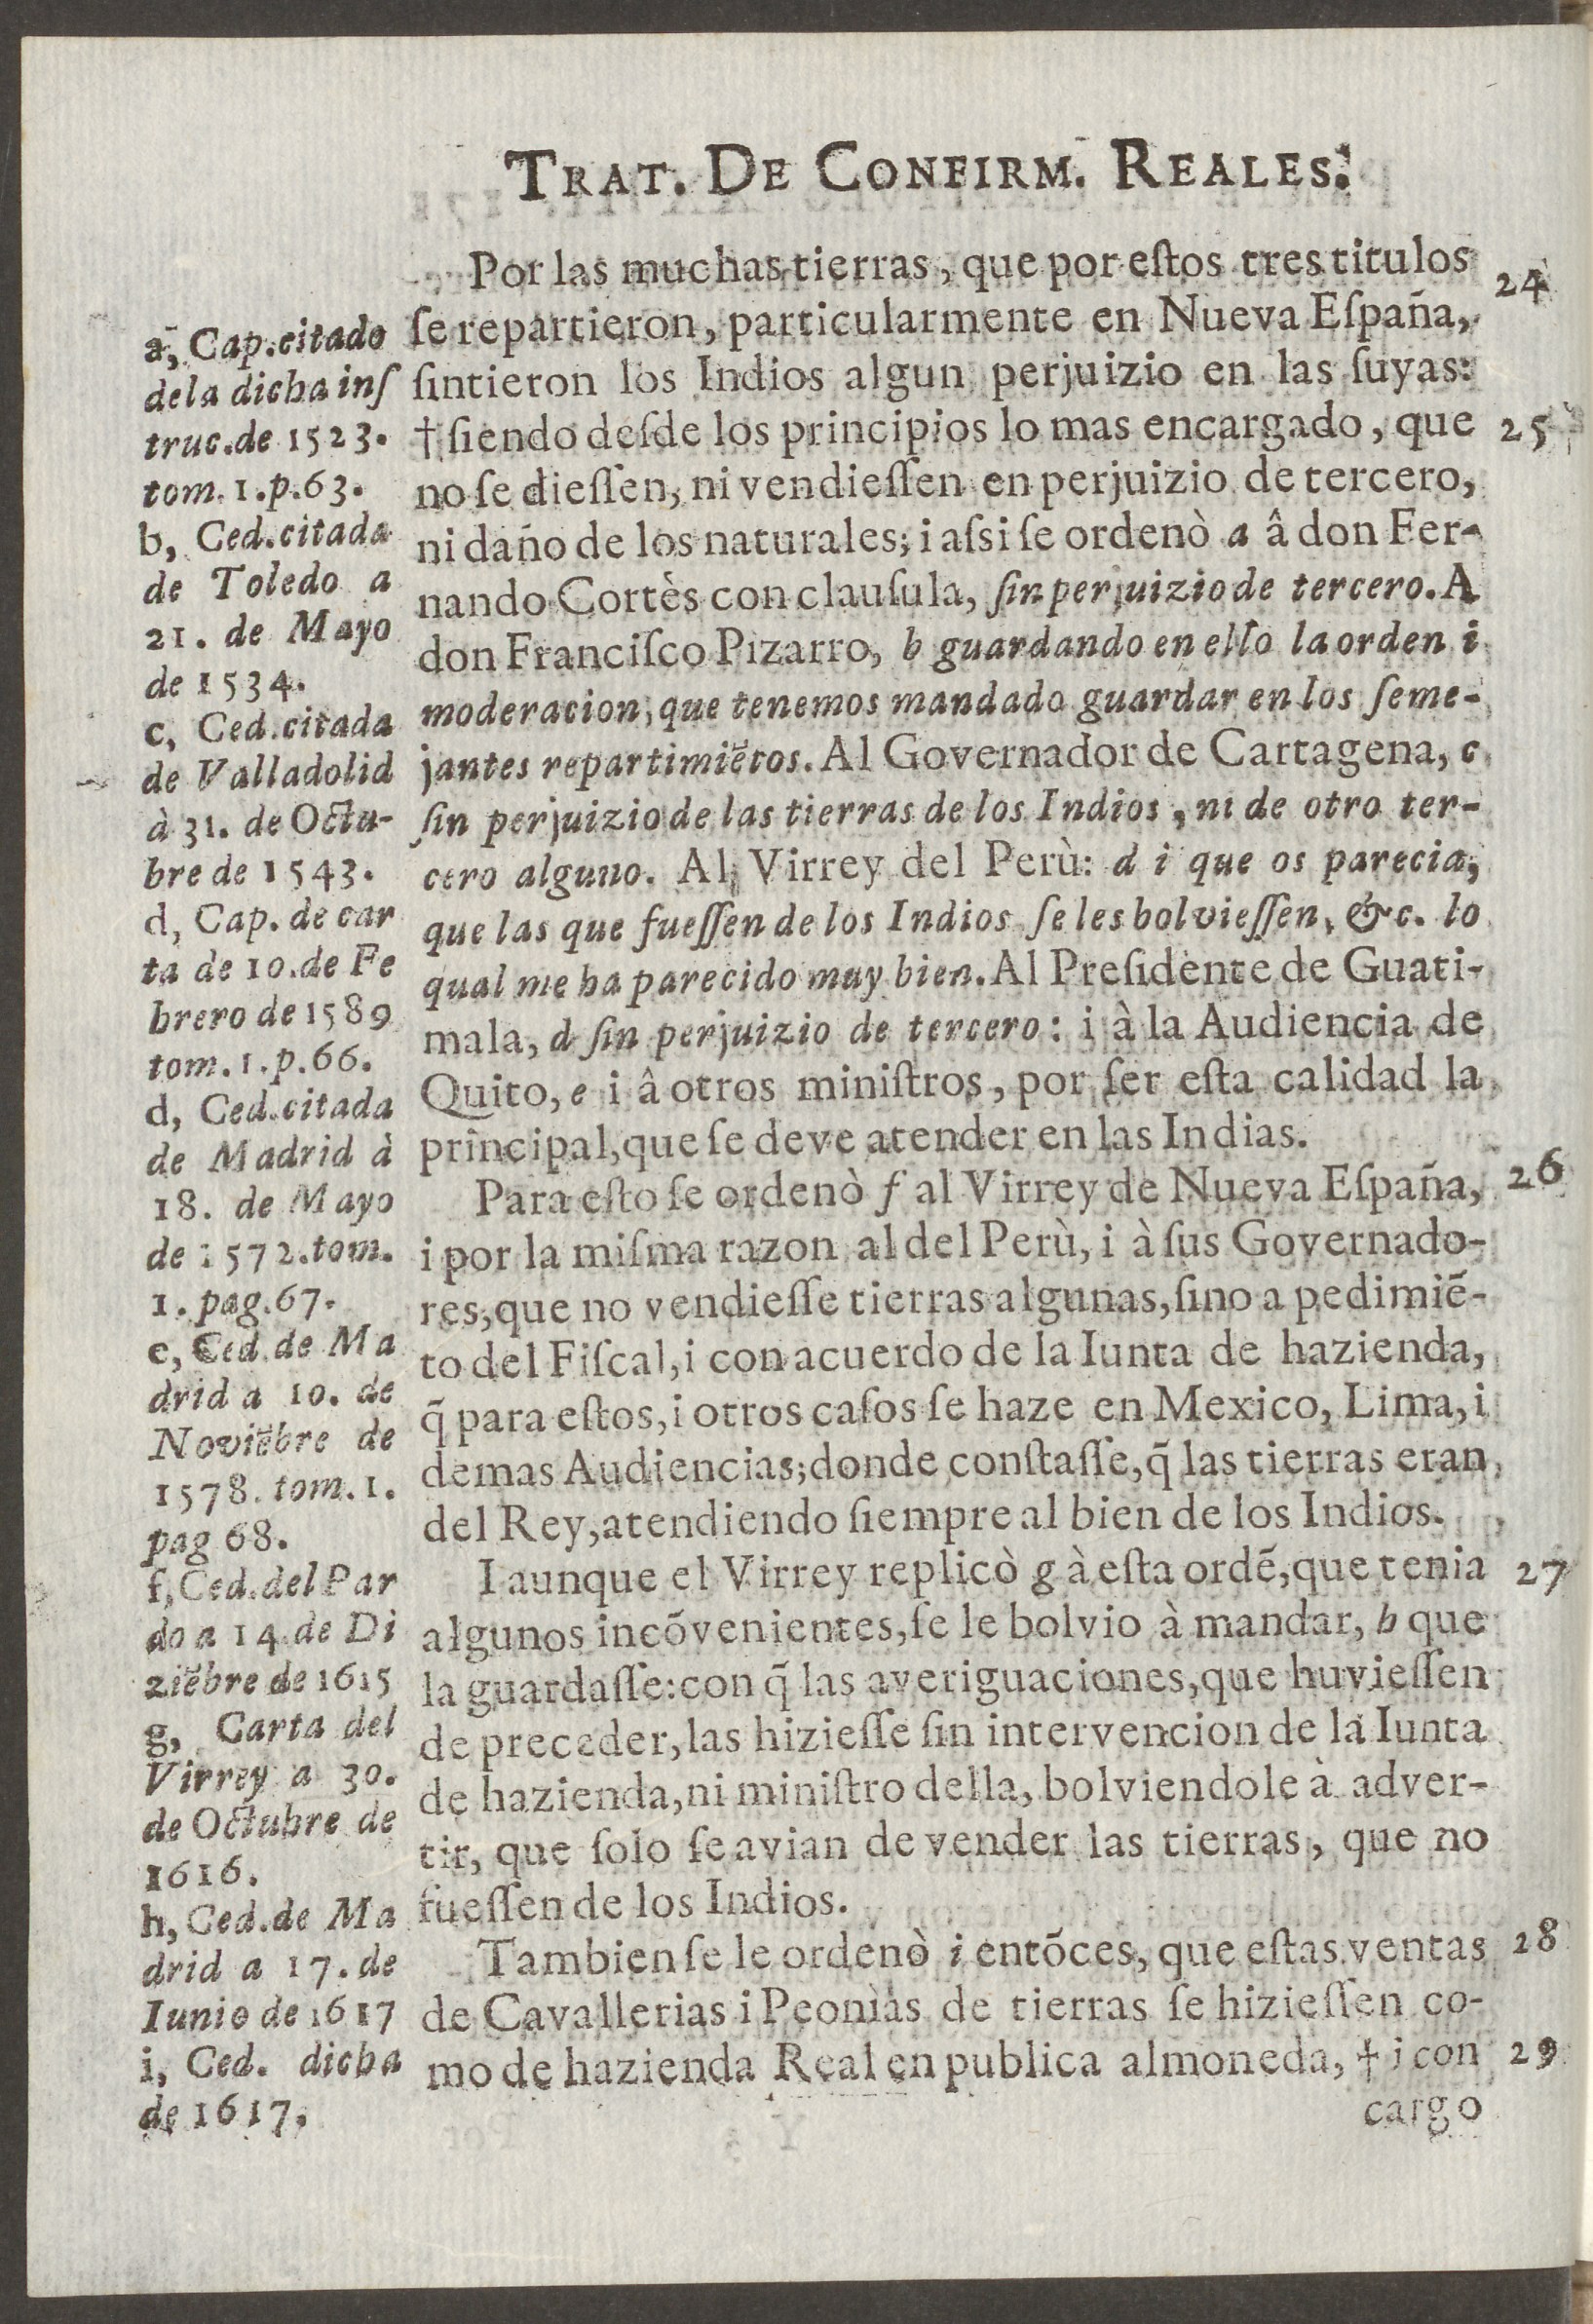 TRAT. DE CONFIRM. REALES.
Por las muchas tierras, que por eſtos tres titulos
ſe repartieron, particularmente en Nueva Eſpaña,
ſintieron los Indios algun perjuizio en las ſuyas:
† ſiendo deſde los principios lo mas encargado, que
no ſe dieſſen, ni vendieſſen en perjuizio de tercero,
ni daño de los naturales; i aſsi ſe ordenò a â don Fer-
nando Cortès con clauſula, ſin perjuizio de tercero. A
don Franciſco Pizarro, b guardando en ello la orden i
moderacion, que tenemos mandado guardar en los ſeme-
jantes repartimiẽtos. Al Governador de Cartagena, c
ſin perjuizio de las tierras de los Indios, ni de otro ter-
cero alguno. Al Virrey del Perù: d i que os parecia,
que las que fueſſen de los Indios ſe les bolvieſſen, &c. lo
qual me ha parecido muy bien. Al Preſidente de Guati-
mala, d ſin perjuizio de tercero: i à la Audiencia de
Quito, e i â otros miniſtros, por ſer eſta calidad la
principal, que ſe deve atender en las Indias.
Para eſto ſe ordenò f al Virrey de Nueva Eſpaña,
i por la miſma razon al del Perù, i à ſus Governado-
res, que no vendieſſe tierras algunas, ſino a pedimiẽ-
to del Fiſcal, i con acuerdo de la Iunta de hazienda,
q̃ para eſtos, i otros caſos ſe haze en Mexico, Lima, i
demas Audiencias; donde conſtaſſe, q̃ las tierras eran
del Rey, atendiendo ſiempre al bien de los Indios.
I aunque el Virrey replicò g à eſta ordẽ, que tenia
algunos incõvenientes, ſe le bolvio à mandar, h que
la guardaſſe: con q̃ las averiguaciones, que huvieſſen
de preceder, las hizieſſe ſin intervencion de la Iunta
de hazienda, ni miniſtro della, bolviendole à adver-
tir, que ſolo ſe avian de vender las tierras, que no
fueſſen de los Indios.
Tambien ſe le ordenò i entõces, que eſtas ventas
de Cavallerias i Peonìas de tierras ſe hizieſſen co-
mo de hazienda Real en publica almoneda, † i con
cargo
a, Cap. citado
de la dicha inſ
truc. de 1523.
tom. 1. p. 63.
b, Ced. citada
de Toledo a
21. de Mayo
de 1534.
c, Ced. citada
de Valladolid
à 31. de Octu-
bre de 1543.
d, Cap. de car
ta de 10. de Fe
brero de 1589
tom. 1. p. 66.
d, Ced. citada
de Madrid à
18. de Mayo
de 1572. tom.
1. pag. 67.
e, Ced. de Ma
drid a 10. de
Noviẽbre de
1578. tom. 1.
pag 68.
f, Ced. del Par
do a 14. de Di
ziẽbre de 1615
g, Carta del
Virrey a 30.
de Octubre de
1616.
h, Ced. de Ma
drid a 17. de
Iunio de 1617
i, Ced. dicha
de 1617.
24
25
26
27
28
29